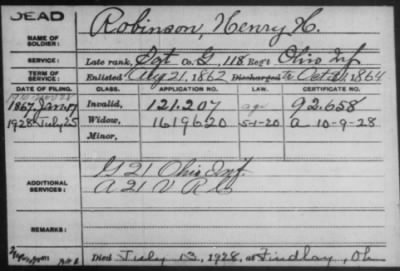 DEAD
NAME OF SOLDIER: Robinson, Henry H.
SERVICE: Late rank, Sgt Co. G, 118 Reg't Ohio Inf
TERM OF SERVICE: Enlisted Aug 21, 1862 Discharged Oct 1864
DATE OF FILING. CLASS. APPLICATION NO. LAW. CERTIFICATE NO.
1867 Jan 7 Invalid, 121.207 age 92.658
1928 July 25 Widow, 1619620 5-1-20 a 10-9-28
Minor,
ADDITIONAL SERVICES: G 21 Ohio Inf.
A 21 V R C
REMARKS:
Died July 13, 1928, at Findlay, Oh